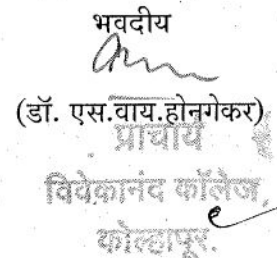 भवदीय
(डॉ. एस.वाय.होनगेकर)
प्राचार्य
विवेकानंद कॉलेज,
कोल्हापूर.